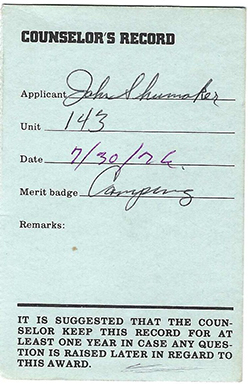 COUNSELOR'S RECORD
Applicant John Shumaker
Unit 143
Date 7/30/76
Merit badge Camping
Remarks:
IT IS SUGGESTED THAT THE COUN-
SELOR KEEP THIS RECORD FOR AT
LEAST ONE YEAR IN CASE ANY QUES-
TION IS RAISED LATER IN REGARD TO
THIS AWARD.